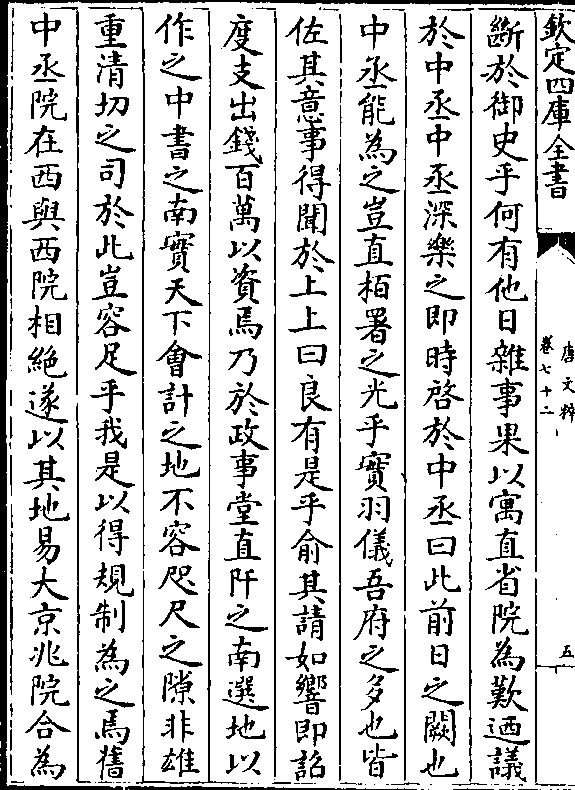 欽定四庫全書
唐文粹
卷七十二
五
斷於御史乎何有他日雜事果以寓直省院為歎迺議
於中丞中丞深樂之即時啓於中丞曰此前日之闕也
中丞能為之豈直栢署之光乎實羽儀吾府之多也皆
佐其意事得聞於上上曰良有是乎俞其請如響即詔
度支出錢百萬以資焉乃於政事堂直阡之南選地以
作之中書之南實天下會計之地不容咫尺之隙非雄
重清切之司於此豈容足乎我是以得規制為之焉舊
中丞院在西與西院相絶遂以其地易大京兆院合為